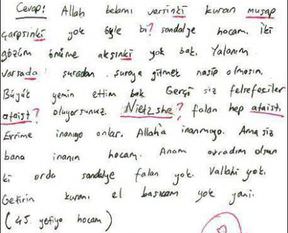 Cevap: Allah belamı versinki kuran musap
çarpsınki yok öyle bi? sandalye hocam. İki
gözüm önüme aksınki yok bak. Yalanım
varsada suradan suraya gitmek nasip olmasın.
Büyük yemin ettim bak Gerçi siz felsefeciler
ataist? oluyorsunuz. Nietzshe? falan hep ataistti
Evrime inanıyo onlar. Allah'a inanmıyo. Ama siz
bana inanın hocam. Anam avradım olsun
ki orda sandalye falan yok. Vallahi yok.
Getirin kuranı el basıcam yok yani.
(45 yetiyo hocam)